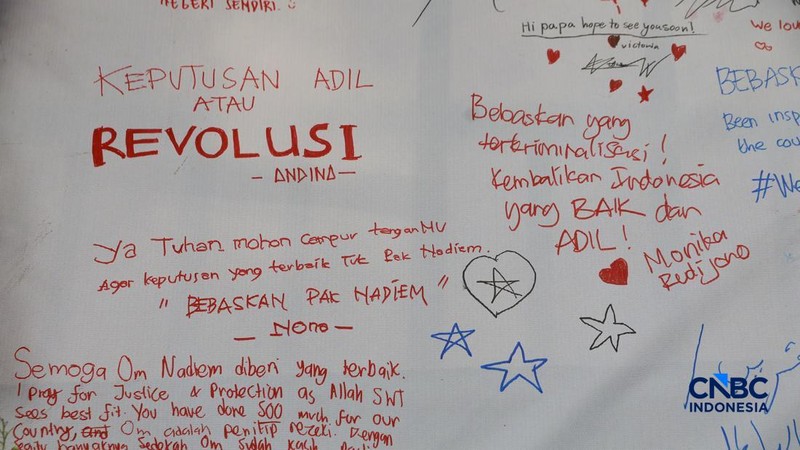 NEGERI SENDIRI.
KEPUTUSAN ADIL
ATAU
REVOLUSI
- ANDINA -
Ya Tuhan mohon campur tanganMU
Agar keputusan yang terbaik Tuk Pak Nadiem.
" BEBASKAN PAK NADIEM "
- Nono -
Semoga Om Nadiem diberi yang terbaik.
I pray for Justice & Protection as Allah SWT
sees best fit. You have done soo much for our
Country, Om adalah penitip rezeki. Dengan
Hi papa hope to see you soon!
victoria
Bebaskan yang
terkriminalisasi!
Kembalikan Indonesia
yang BAIK dan
ADIL!
Monika
Rudijono
We lo
BEBASK
Been insp
the cou
#We
CNBC
INDONESIA